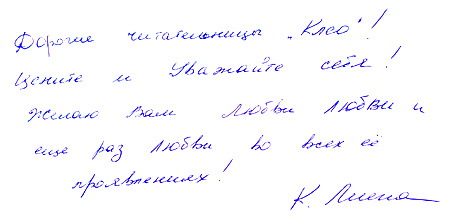 Дорогие читательницы „Клео"!
Цените и Уважайте себя!
Желаю Вам Любви Любви и
еще раз Любви во всех её
проявлениях!
К.